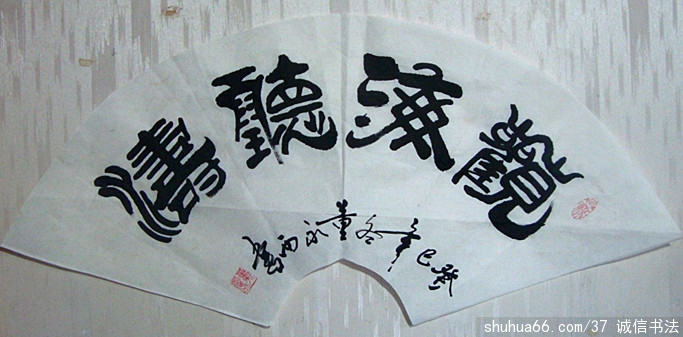 觀海聽濤
癸巳年冬董永西書
shuhua66.com/37 诚信书法